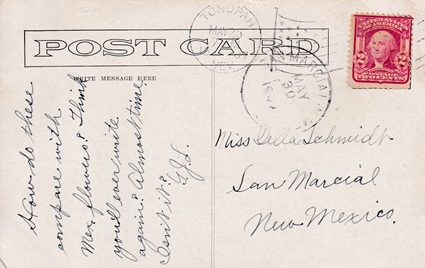 POST CARD
WRITE MESSAGE HERE
TONOPAH
MAY 29
NEV.
MARCIAL
MAY
30
UNITED STATES
TWO CENTS
How do these
compare with
Mex. flowers? Think
you'll ever write
again? Almost time
Isn't it?
E.J.S.
Miss Della Schmidt
San Marcial
New Mexico.